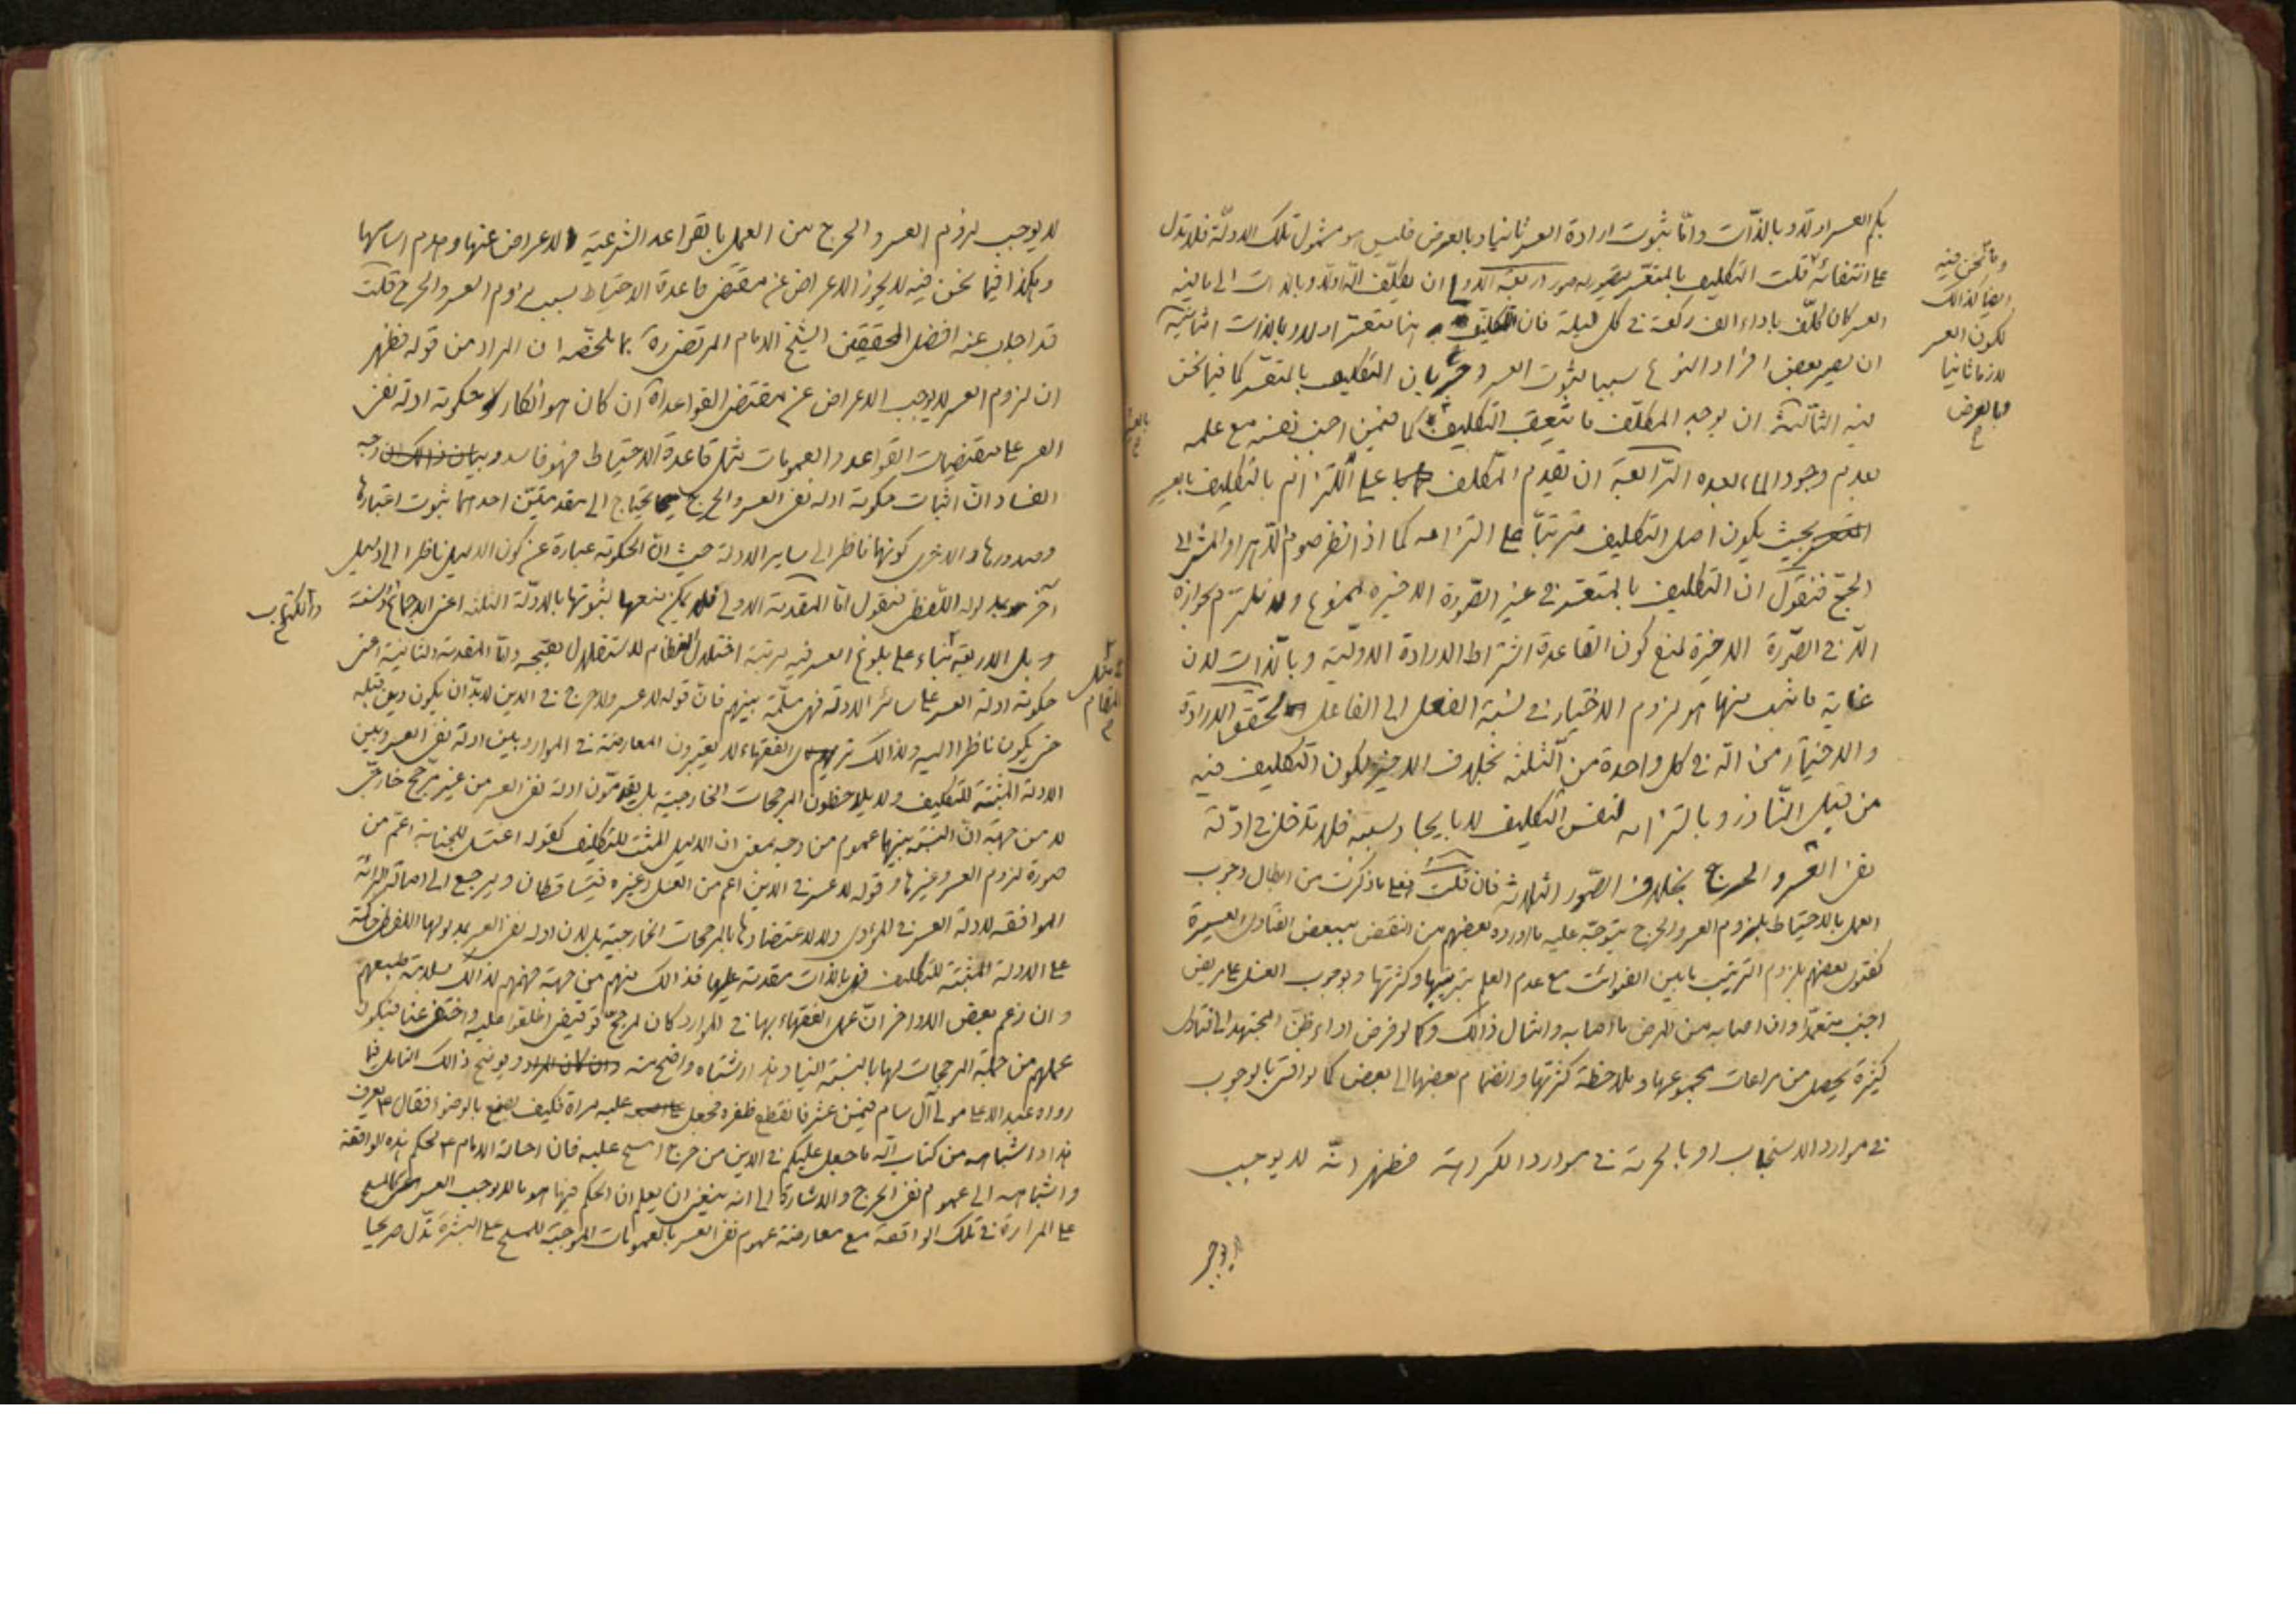 بكم العسر اولا وبالذات واما ثبوت ارادة العسر ثانيا وبالعرض فليس هو مشمول تلك الادلة فلا تدل
على انتفائه قلت التكليف بالمتعسر يتصور بصور اربعة الاولى ان يكلف اولا وبالذات الى ما فيه
العسر كان كلف باداء الف ركعة في كل ليلة فان التكليف هنا متعسر اولا وبالذات الثانية
ان يصير بعض افراد النوع سببا لثبوت العسر وجريان التكليف بالمتعسر كما فيما نحن
فيه الثالثة ان يوجد المكلف ما يتعقب التكليف كما فيمن اجنب نفسه مع علمه
بعدم وجود الماء بعده الرابعة ان يقدم المكلف على التزام بالتكليف
بحيث يكون اصل التكليف مترتبا على التزامه كما اذا نظر صوم الدهر او المشي الى
الحج فنقول ان التكليف بالمتعسر في غير الصورة الاخيرة ممنوع ولا نلتزم بجوازه
الا في الصورة الاخيرة لمنع كون القاعدة اشتراط الارادة الاولية وبالذات لان
غاية ما ثبت منها هو لزوم الاختيار في نسبة الفعل الى الفاعل لتحقق الارادة
والاختيار من الله في كل واحدة من الثلثة بخلاف الاخير لكون التكليف فيه
من قبل الناذر وبالتزامه لنفس التكليف لا بايجاد سببه فلا تدخل في ادلة
نفي العسر والحرج بخلاف الصور الثلاثة فان قلت فعلى ما ذكرت من ابطال وجوب
العمل بالاحتياط بلزوم العسر والحرج يتوجه عليه ما اورده بعضهم من النقض ببعض الفتاوى العسيرة
كفتوى بعضهم بلزوم الترتيب ما بين الفوائت مع عدم العلم بترتيبها وكثرتها وبوجوب الغسل على مريض
اجنب متعمدا وان اصابه من المرض ما اصابه وامثال ذالك وكما لو فرض اداء ظن المجتهد الى فتاوى
كثيرة يحصل من مراعات مجموعها وملاحظة كثرتها وانضمام بعضها الى بعض كما لو افتى بالوجوب
في موارد الاستحباب او بالحرمة في موارد الكراهة فظهر انه لا يوجب
لا يوجب
وما نحن فيه
ايضا كذالك
لكون العسر
لازما ثانيا
وبالعرض
لا يوجب لزوم العسر والحرج من العمل بالقواعد الشرعية الاعراض عنها وهدم اساسها
وهكذا فيما نحن فيه لا يجوز الاعراض عن مقتضى قاعدة الاحتياط بسبب لزوم العسر والحرج قلت
قد اجاب عنه افضل المحققين الشيخ الامام المرتضى ره بما ملخصه ان المراد من قوله فظهر
ان لزوم العسر لا يوجب الاعراض عن مقتضى القواعد اه ان كان هو انكار حكومة ادلة نفي
العسر على مقتضيات القواعد والعمومات مثل قاعدة الاحتياط فهو فاسد وبيان ذالك ان وجه
الفساد ان اثبات حكومة ادلة نفي العسر والحرج يحتاج الى مقدمتين احدهما ثبوت اعتبارها
وصدورها والاخرى كونها ناظرا الى ساير الادلة حيث ان الحكومة عبارة عن كون الدليل ناظرا الى دليل
آخر بمدلوله اللفظي فنقول اما المقدمة الاولى فلا يمكن منعها لثبوتها بالادلة الثلثة اعني الاجماع والسنة
والكتاب
بل الاربعة بناء على بلوغ العسر فيه مرتبة اختلال النظام لاستقلال بقبحه واما المقدمة الثانية اعني
في مثل
المقام
حكومة ادلة العسر على سائر الادلة فهي مسلمة بينهم فان قوله لا عسر ولا حرج في الدين لا بد ان يكون دين قبله
حتى يكون ناظرا اليه ولذالك الفقهاء لا يعتبرون المعارضة في الموارد بين ادلة نفي العسر وبين
الادلة المثبتة للتكليف ولا يلاحظون المرجحات الخارجية بل يقدمون ادلة نفي العسر من غير مرجح خارجي
لا من جهة ان النسبة بينها عموم من وجه بمعنى ان الدليل المثبت للتكليف كقوله اغتسل للجنابة اعم من
صورة لزوم العسر وغيرها وقوله لا عسر في الدين اعم من الغسل وغيره فيتساقطان ويرجع الى اصالة البرائة
الموافقة لادلة العسر في المؤدى ولا لاعتضادها بالمرجحات الخارجية بل لان ادلة نفي العسر بمدلولها اللفظي حاكمة
على الادلة المثبتة للتكليف فهي بالذات مقدمة عليها فذالك منهم من جهة فهمهم لذالك بسلامة طبعهم
وان زعم بعض الاواخر ان عمل الفقهاء بها في الموارد كان لمرجح توقيفي اطلعوا عليه واختفى عنا فيكون
عملهم من جملة المرجحات لها بالنسبة الينا وهذا اشتباه واضح منه وان كان المراد ويوضح ذالك التامل فيما
رواه عبد الاعلى مولى آل سام فيمن عثر فانقطع ظفره فجعل عليه مرارة فكيف يصنع بالوضوء فقال ع يعرف
هذا واشباهه من كتاب الله ما جعل عليكم في الدين من حرج امسح عليه فان احالة الامام ع لحكم هذه الواقعة
واشباهه الى عموم نفي الحرج والاشارة الى انه ينبغي ان يعلم ان الحكم فيها هو ما لا يوجب العسر كالمسح
على المرارة في تلك الواقعة مع معارضة عموم نفي العسر بالعمومات الموجبة للمسح على البشرة تدل صريحا